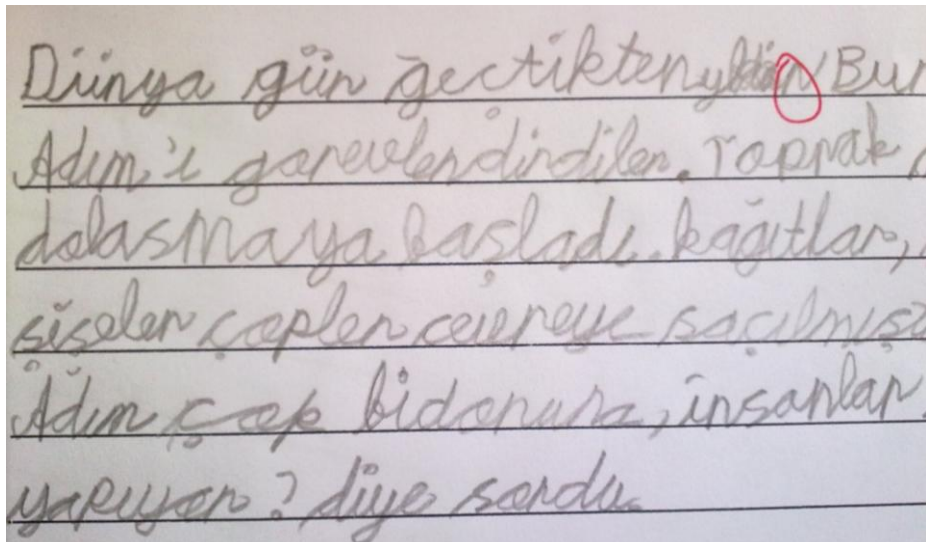 Dünya gün geçtikten Bur
Adım'ı gorevlendirdiler. Toprak
dolasmaya başladı. kağıtlar,
şişeler çöpler cevreye saçılmıştı
Adım çöp bidonuna, insanlar
yapıyor? diye sordu.